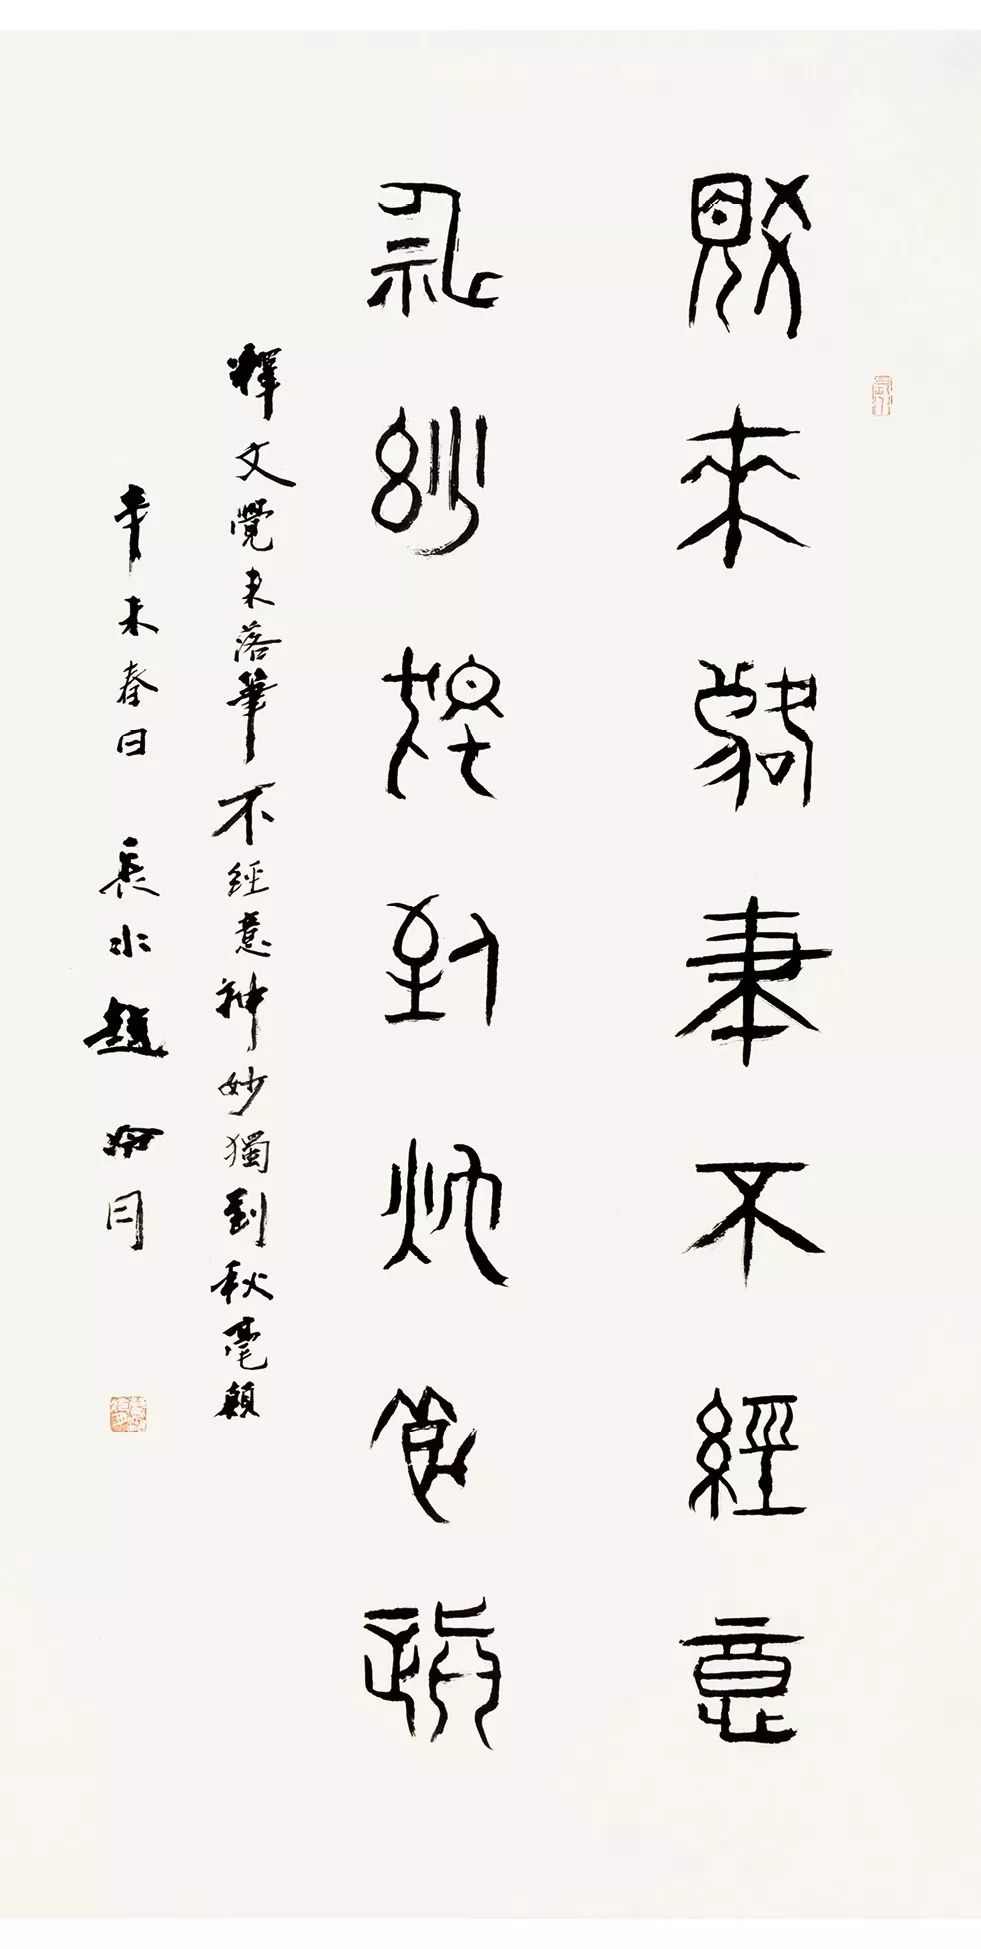 覺來落筆不經意
神妙獨到秋毫顛
釋文覺來落筆不經意神妙獨到秋毫顛
辛未春日 長水趙冷月